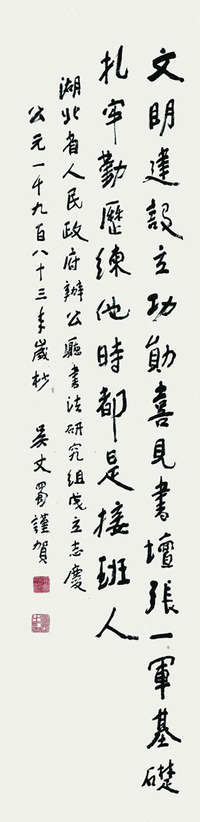 文明建設立功勛喜見書壇張一軍基礎
扎牢勤歷練他時都是接班人
湖北省人民政府辦公廳書法研究組成立志慶
公元一千九百八十三年歲杪 吳丈蜀謹賀